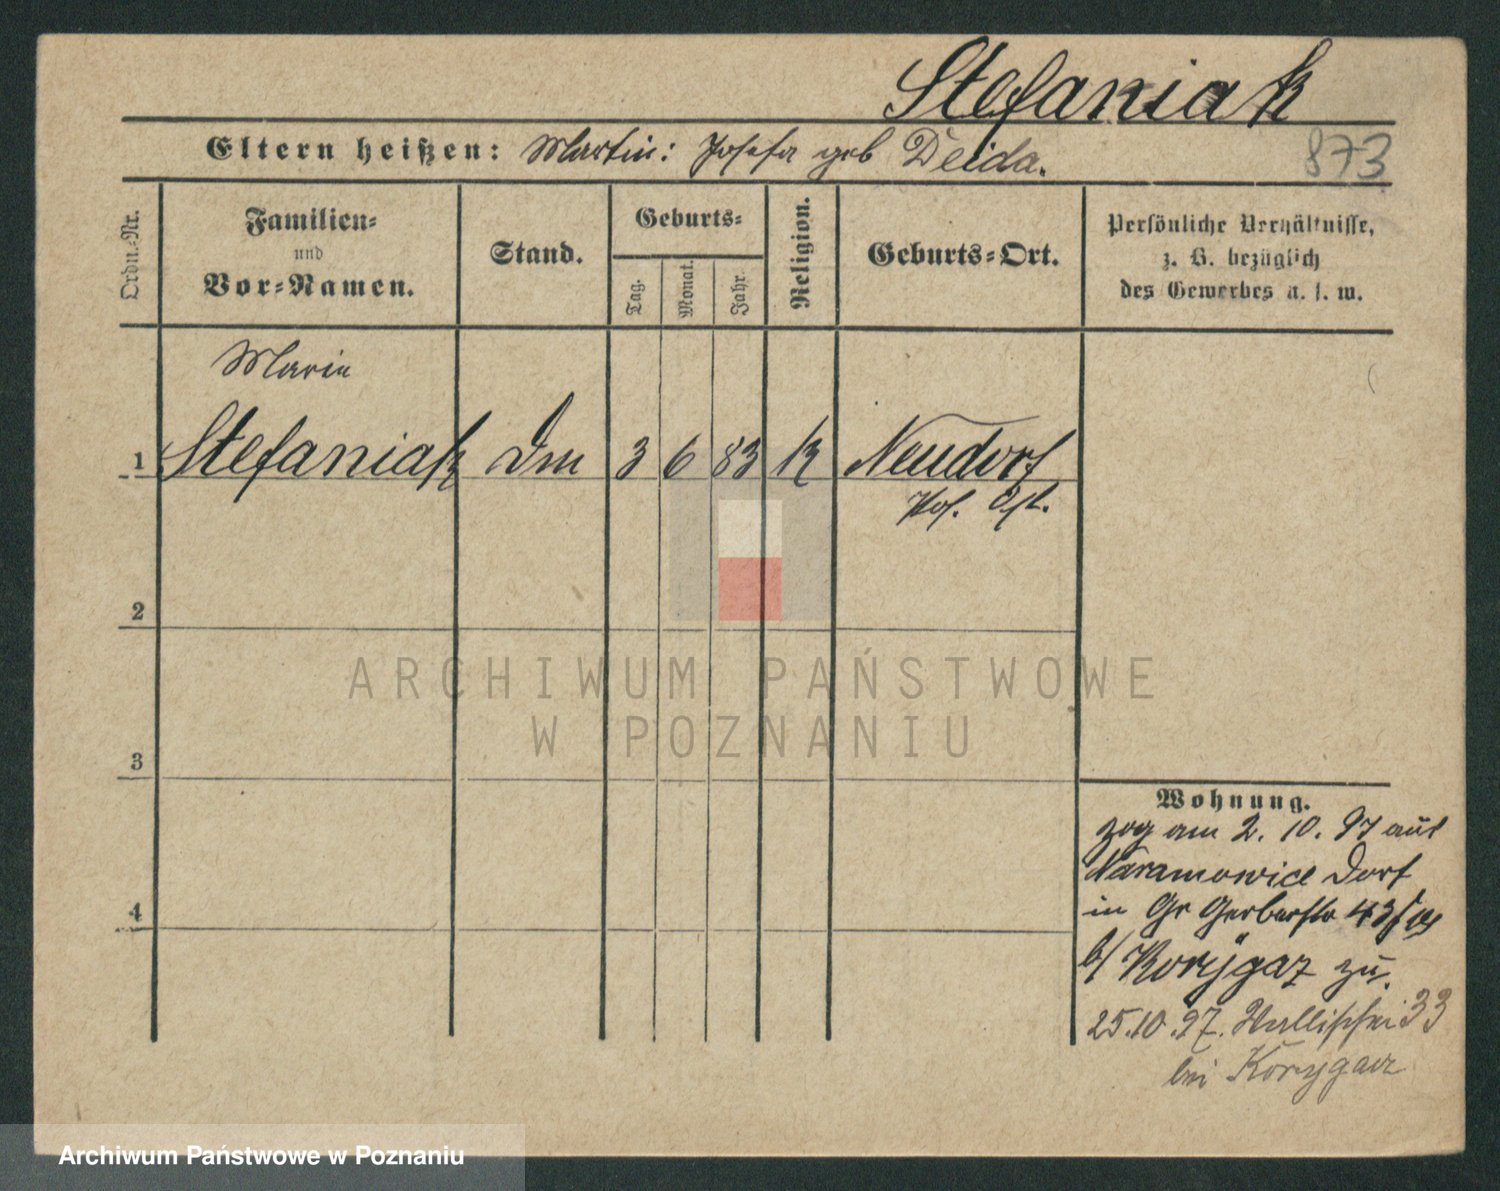 Stefaniak
Eltern heißen: Martin: Josefa geb Deida.
873
Ordn.-Nr.
Familien-
und
Vor-Namen.
Stand.
Geburts-
Tag.
Monat.
Jahr.
Religion.
Geburts-Ort.
Persönliche Verhältnisse,
z. B. bezüglich
des Gewerbes u. s. w.
Marie
1 Stefaniak 3 6 83 k Neudorf
Pos. Ost.
2
3
4
Wohnung.
zog am 2. 10. 97 aus
Naramowice Dorf
in Gr Gerberstr 43
b/ zu.
25.10.97. Wallischei 33
bei
ARCHIWUM PAŃSTWOWE
W POZNANIU
Archiwum Państwowe w Poznaniu